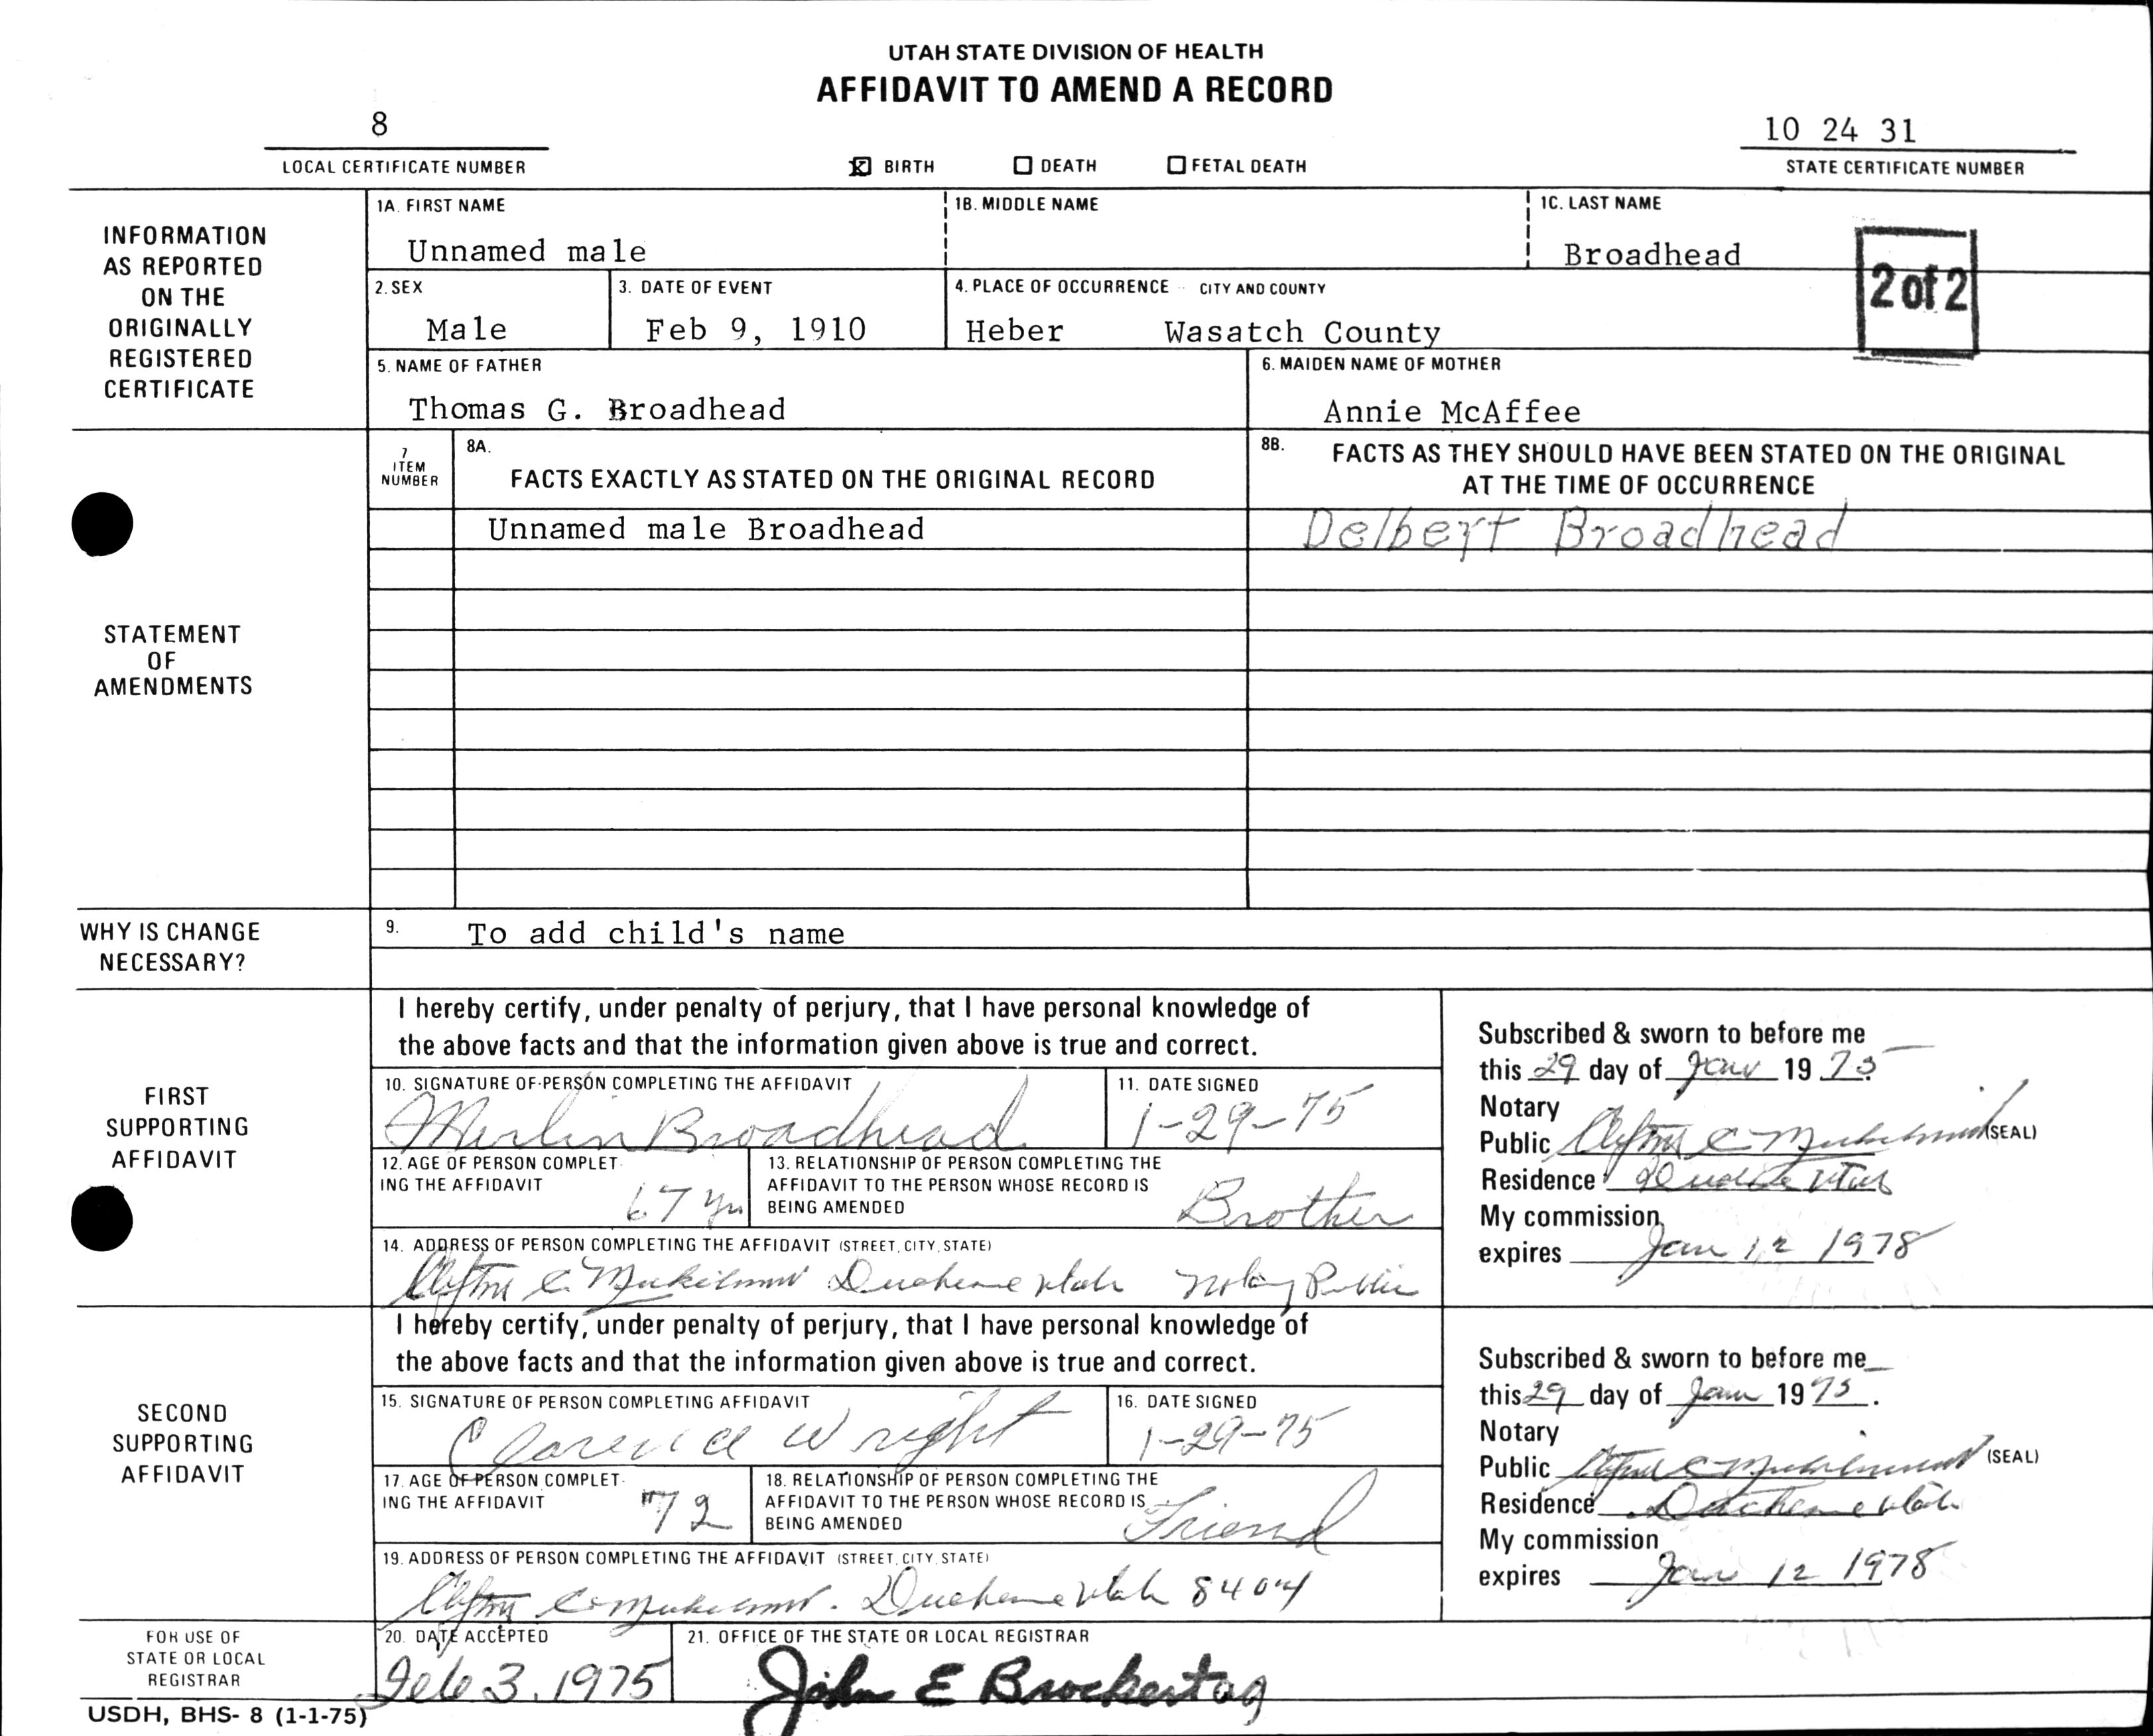 UTAH STATE DIVISION OF HEALTH
AFFIDAVIT TO AMEND A RECORD
8
LOCAL CERTIFICATE NUMBER
☒ BIRTH ☐ DEATH ☐ FETAL DEATH
10 24 31
STATE CERTIFICATE NUMBER
INFORMATION
AS REPORTED
ON THE
ORIGINALLY
REGISTERED
CERTIFICATE
1A. FIRST NAME
Unnamed male
1B. MIDDLE NAME
1C. LAST NAME
Broadhead
2 of 2
2. SEX
Male
3. DATE OF EVENT
Feb 9, 1910
4. PLACE OF OCCURRENCE CITY AND COUNTY
Heber Wasatch County
5. NAME OF FATHER
Thomas G. Broadhead
6. MAIDEN NAME OF MOTHER
Annie McAffee
STATEMENT
OF
AMENDMENTS
7
ITEM
NUMBER
8A.
FACTS EXACTLY AS STATED ON THE ORIGINAL RECORD
8B. FACTS AS THEY SHOULD HAVE BEEN STATED ON THE ORIGINAL
AT THE TIME OF OCCURRENCE
Unnamed male Broadhead
Delbert Broadhead
WHY IS CHANGE
NECESSARY?
9. To add child's name
FIRST
SUPPORTING
AFFIDAVIT
I hereby certify, under penalty of perjury, that I have personal knowledge of
the above facts and that the information given above is true and correct.
10. SIGNATURE OF PERSON COMPLETING THE AFFIDAVIT
Merlin Broadhead
11. DATE SIGNED
1-29-75
12. AGE OF PERSON COMPLET-
ING THE AFFIDAVIT
67 yrs
13. RELATIONSHIP OF PERSON COMPLETING THE
AFFIDAVIT TO THE PERSON WHOSE RECORD IS
BEING AMENDED
Brother
14. ADDRESS OF PERSON COMPLETING THE AFFIDAVIT (STREET, CITY, STATE)
Clifton C. Duchesne Utah Notary Public
Subscribed & sworn to before me
this 29 day of Jan 19 75
Notary
Public Clifton C (SEAL)
Residence Utah
My commission
expires Jan 12 1978
SECOND
SUPPORTING
AFFIDAVIT
I hereby certify, under penalty of perjury, that I have personal knowledge of
the above facts and that the information given above is true and correct.
15. SIGNATURE OF PERSON COMPLETING AFFIDAVIT
Clarence Wright
16. DATE SIGNED
1-29-75
17. AGE OF PERSON COMPLET-
ING THE AFFIDAVIT
72
18. RELATIONSHIP OF PERSON COMPLETING THE
AFFIDAVIT TO THE PERSON WHOSE RECORD IS
BEING AMENDED
Friend
19. ADDRESS OF PERSON COMPLETING THE AFFIDAVIT (STREET, CITY, STATE)
Clifton C. Duchesne Utah 8404
Subscribed & sworn to before me
this 29 day of Jan 19 75.
Notary
Public Clifton C (SEAL)
Residence Duchesne Utah
My commission
expires Jan 12 1978
FOR USE OF
STATE OR LOCAL
REGISTRAR
20. DATE ACCEPTED
Feb 3, 1975
21. OFFICE OF THE STATE OR LOCAL REGISTRAR
John E Brockert
USDH, BHS- 8 (1-1-75)